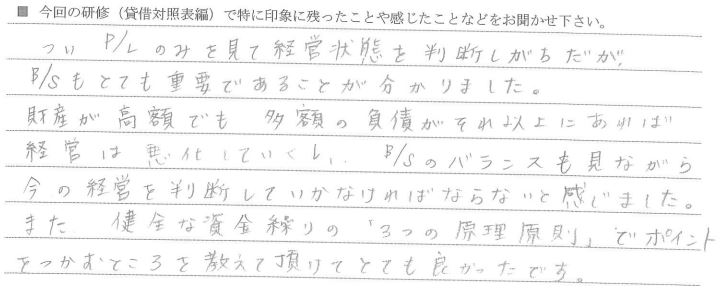 ■ 今回の研修（貸借対照表編）で特に印象に残ったことや感じたことなどをお聞かせ下さい。
つい P/Lのみを見て経営状態を判断しがちだが、
B/Sもとても重要であることが分かりました。
財産が高額でも 多額の負債がそれ以上にあれば
経営は悪化していくし、 B/Sのバランスも見ながら
今の経営を判断していかなければならないと感じました。
また 健全な資金繰りの「3つの原理原則」でポイント
をつかむところを教えて頂けてとても良かったです。